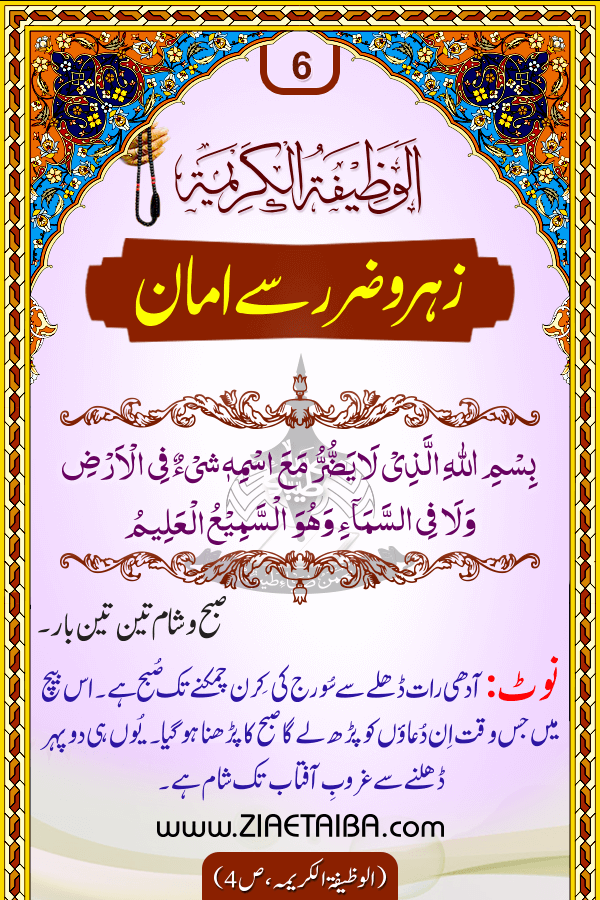 6
الوَظِيفَةُ الْكَرِيْمَة
زہر و ضرر سے امان
بِسْمِ اللّٰهِ الَّذِیْ لَا یَضُرُّ مَعَ اسْمِهٖ شَیْءٌ فِی الْاَرْضِ
وَلَا فِی السَّمَآءِ وَهُوَ الْسَّمِیْعُ الْعَلِیْمُ
صبح و شام تین تین بار۔
نوٹ: آدھی رات ڈھلے سے سُورج کی کِرن چمکنے تک صُبح ہے۔ اس بیچ
میں جس وقت اِن دُعاؤں کو پڑھ لے گا صبح کا پڑھنا ہو گیا۔ یُوں ہی دوپہر
ڈھلنے سے غروبِ آفتاب تک شام ہے۔
www.ZIAETAIBA.com
(الوظیفۃ الکریمہ، ص4)